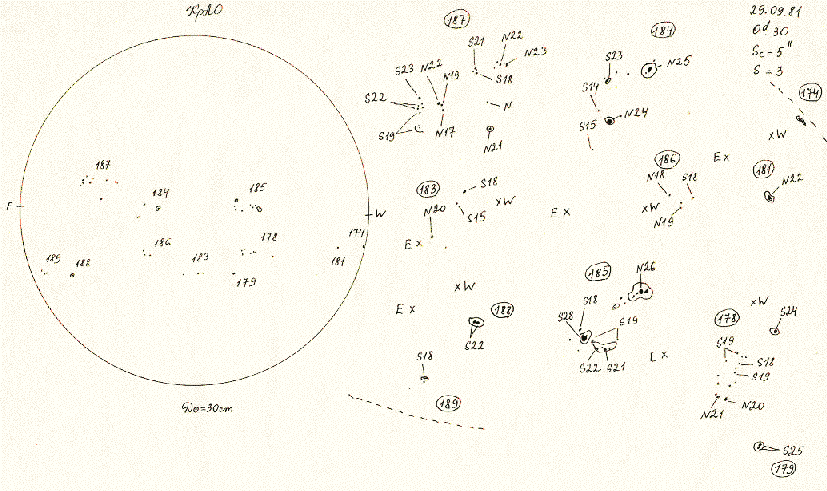 187
184
185
E
W
174
185
188
186
183
178
179
181
187
S21
N22
N23
S18
S23
N22
N19
S22
S19
N17
N
N21
184
S23
N25
S14
S15
N24
25.09.81
S = 3
174
xW
E x
181
N22
183
S18
S15
xW
N20
E x
E x
186
N18
S18
xW
N19
xW
E x
188
S22
S18
189
185
N26
S18
S28
S19
S22
S21
x
xW
178
S24
S19
S18
S19
N21
N20
S25
179